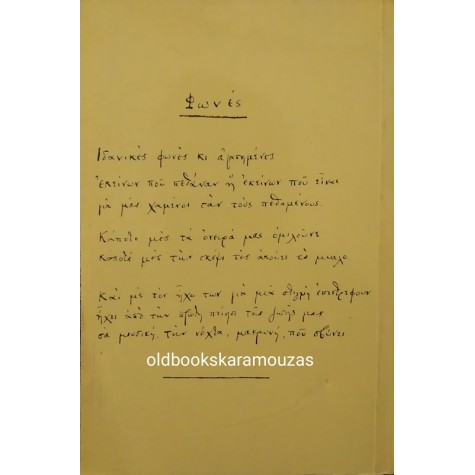 Φωνές
Ιδανικές φωνές κι αγαπημένες
ἐκείνων ποῦ πεθάναν ἤ ἐκείνων ποῦ εἶναι
γιὰ μᾶς χαμένοι σὰν τοὺς πεθαμένους.
Κάποτε μὲς τὰ ὄνειρά μας ὁμιλοῦνε
κάποτε μὲς τὴν σκέψι τὲς ἀκούει τὸ μυαλό.
Καὶ μὲ τὸν ἦχο των γιὰ μιὰ στιγμὴ ἐπιστρέφουν
ἦχοι ἀπὸ τὴν πρώτη ποίησι τῆς ζωῆς μας
σὰ μουσική, τὴν νύχτα, μακρυνή, ποῦ σβύνει.
oldbookskaramouzas